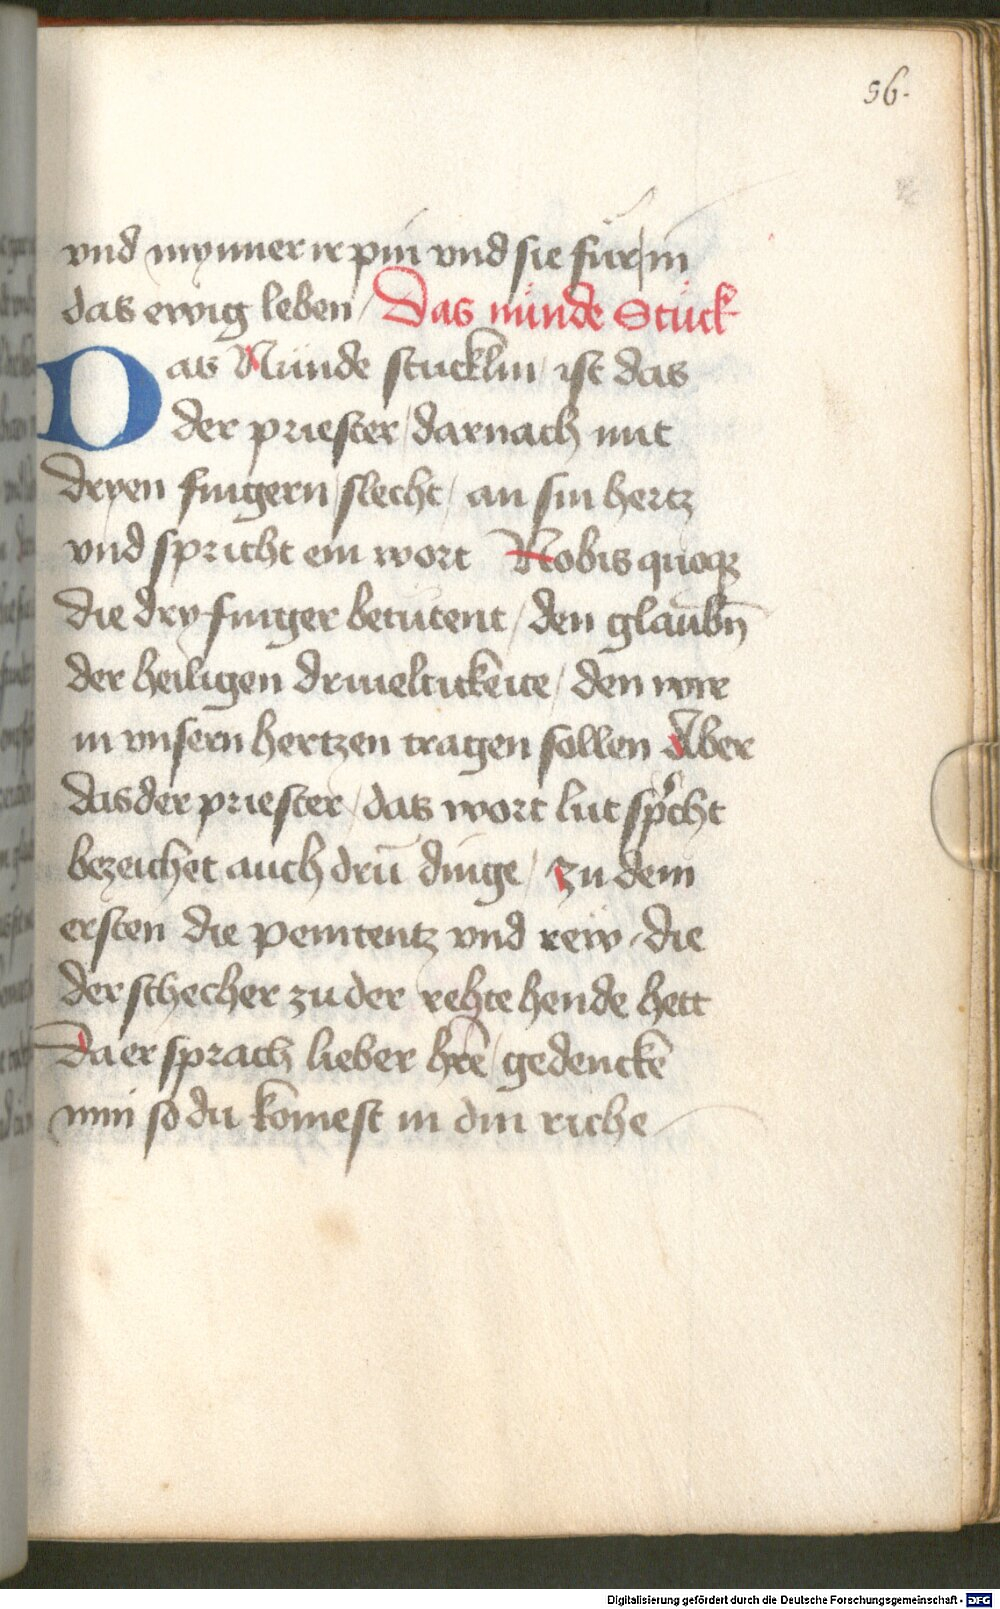 56.
vnd mynner ir pin vnd sie für in
das ewig leben / Das nünde Stück
Das Nünde stücklin / ist das
der priester / darnach mit
dryen fingern slecht / an sin hertz
vnd spricht ein wort Nobis quoqꝫ
die dry finger betütent / den glaubn̄
der heiligen driueltickeite / den wir
in vnsern hertzen tragen sollen Aber
das der priester / das wort lut spͥcht
bezeichet auch drü dinge / zu dem
ersten die penitentz vnd rew / die
der schecher zu der rehte hende hett
Da er sprach lieber hr̄e / gedenckē
min so du komest in din riche
Digitalisierung gefördert durch die Deutsche Forschungsgemeinschaft - DFG